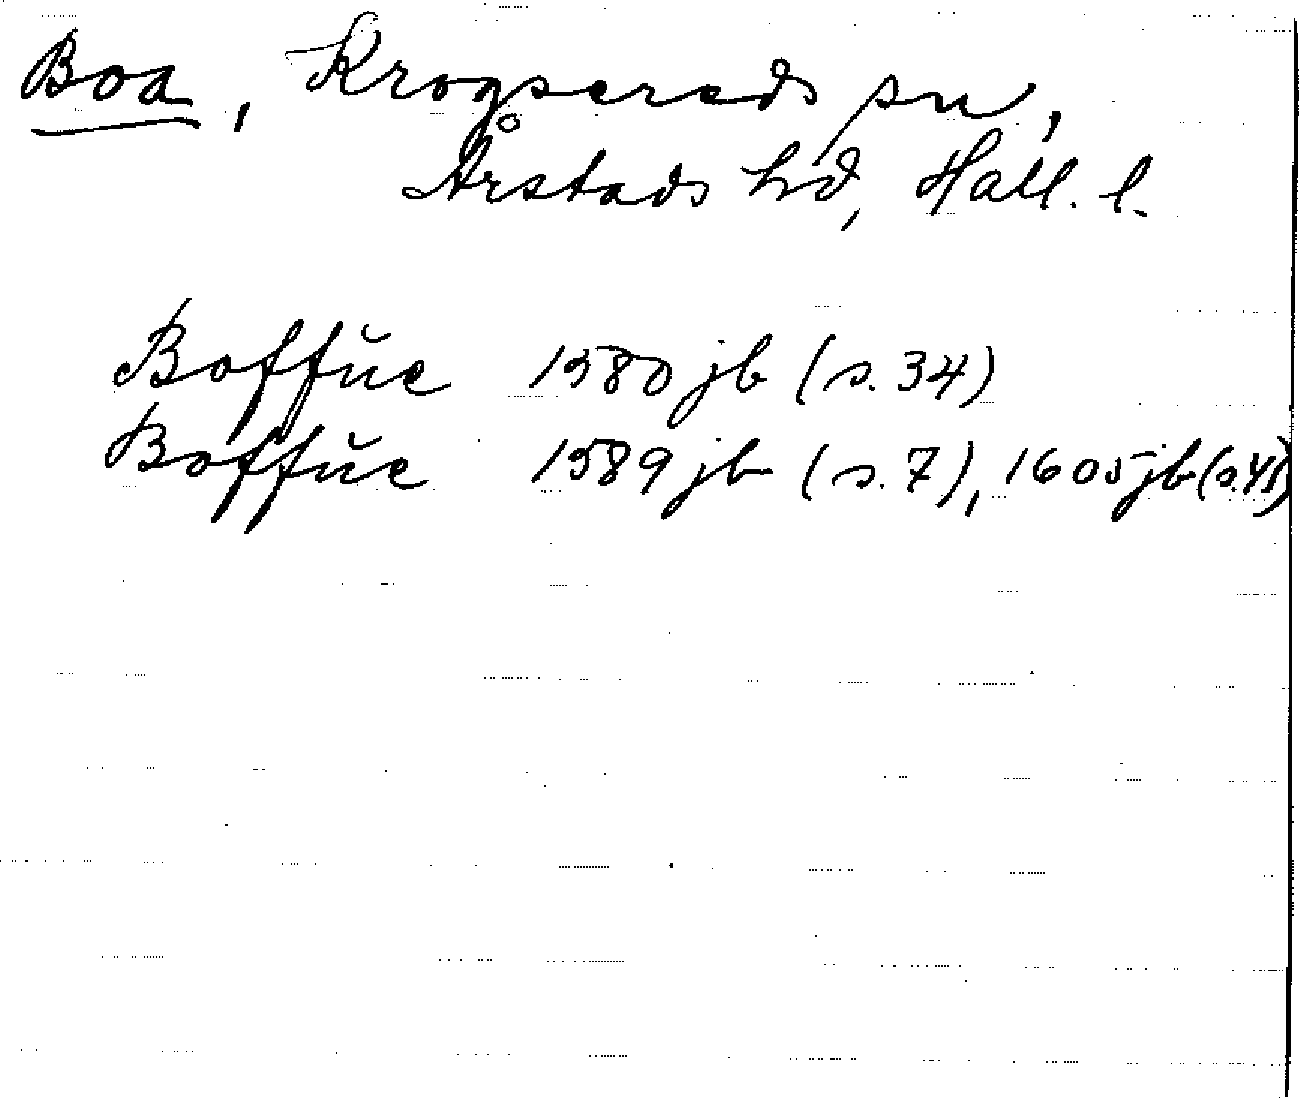 Boa, Krogsereds sn,
Årstads hd, Hall. l.
Boffŭe 1580 jb (s. 34)
Boffŭe 1589 jb (s. 7), 1605 jb (s. 41)